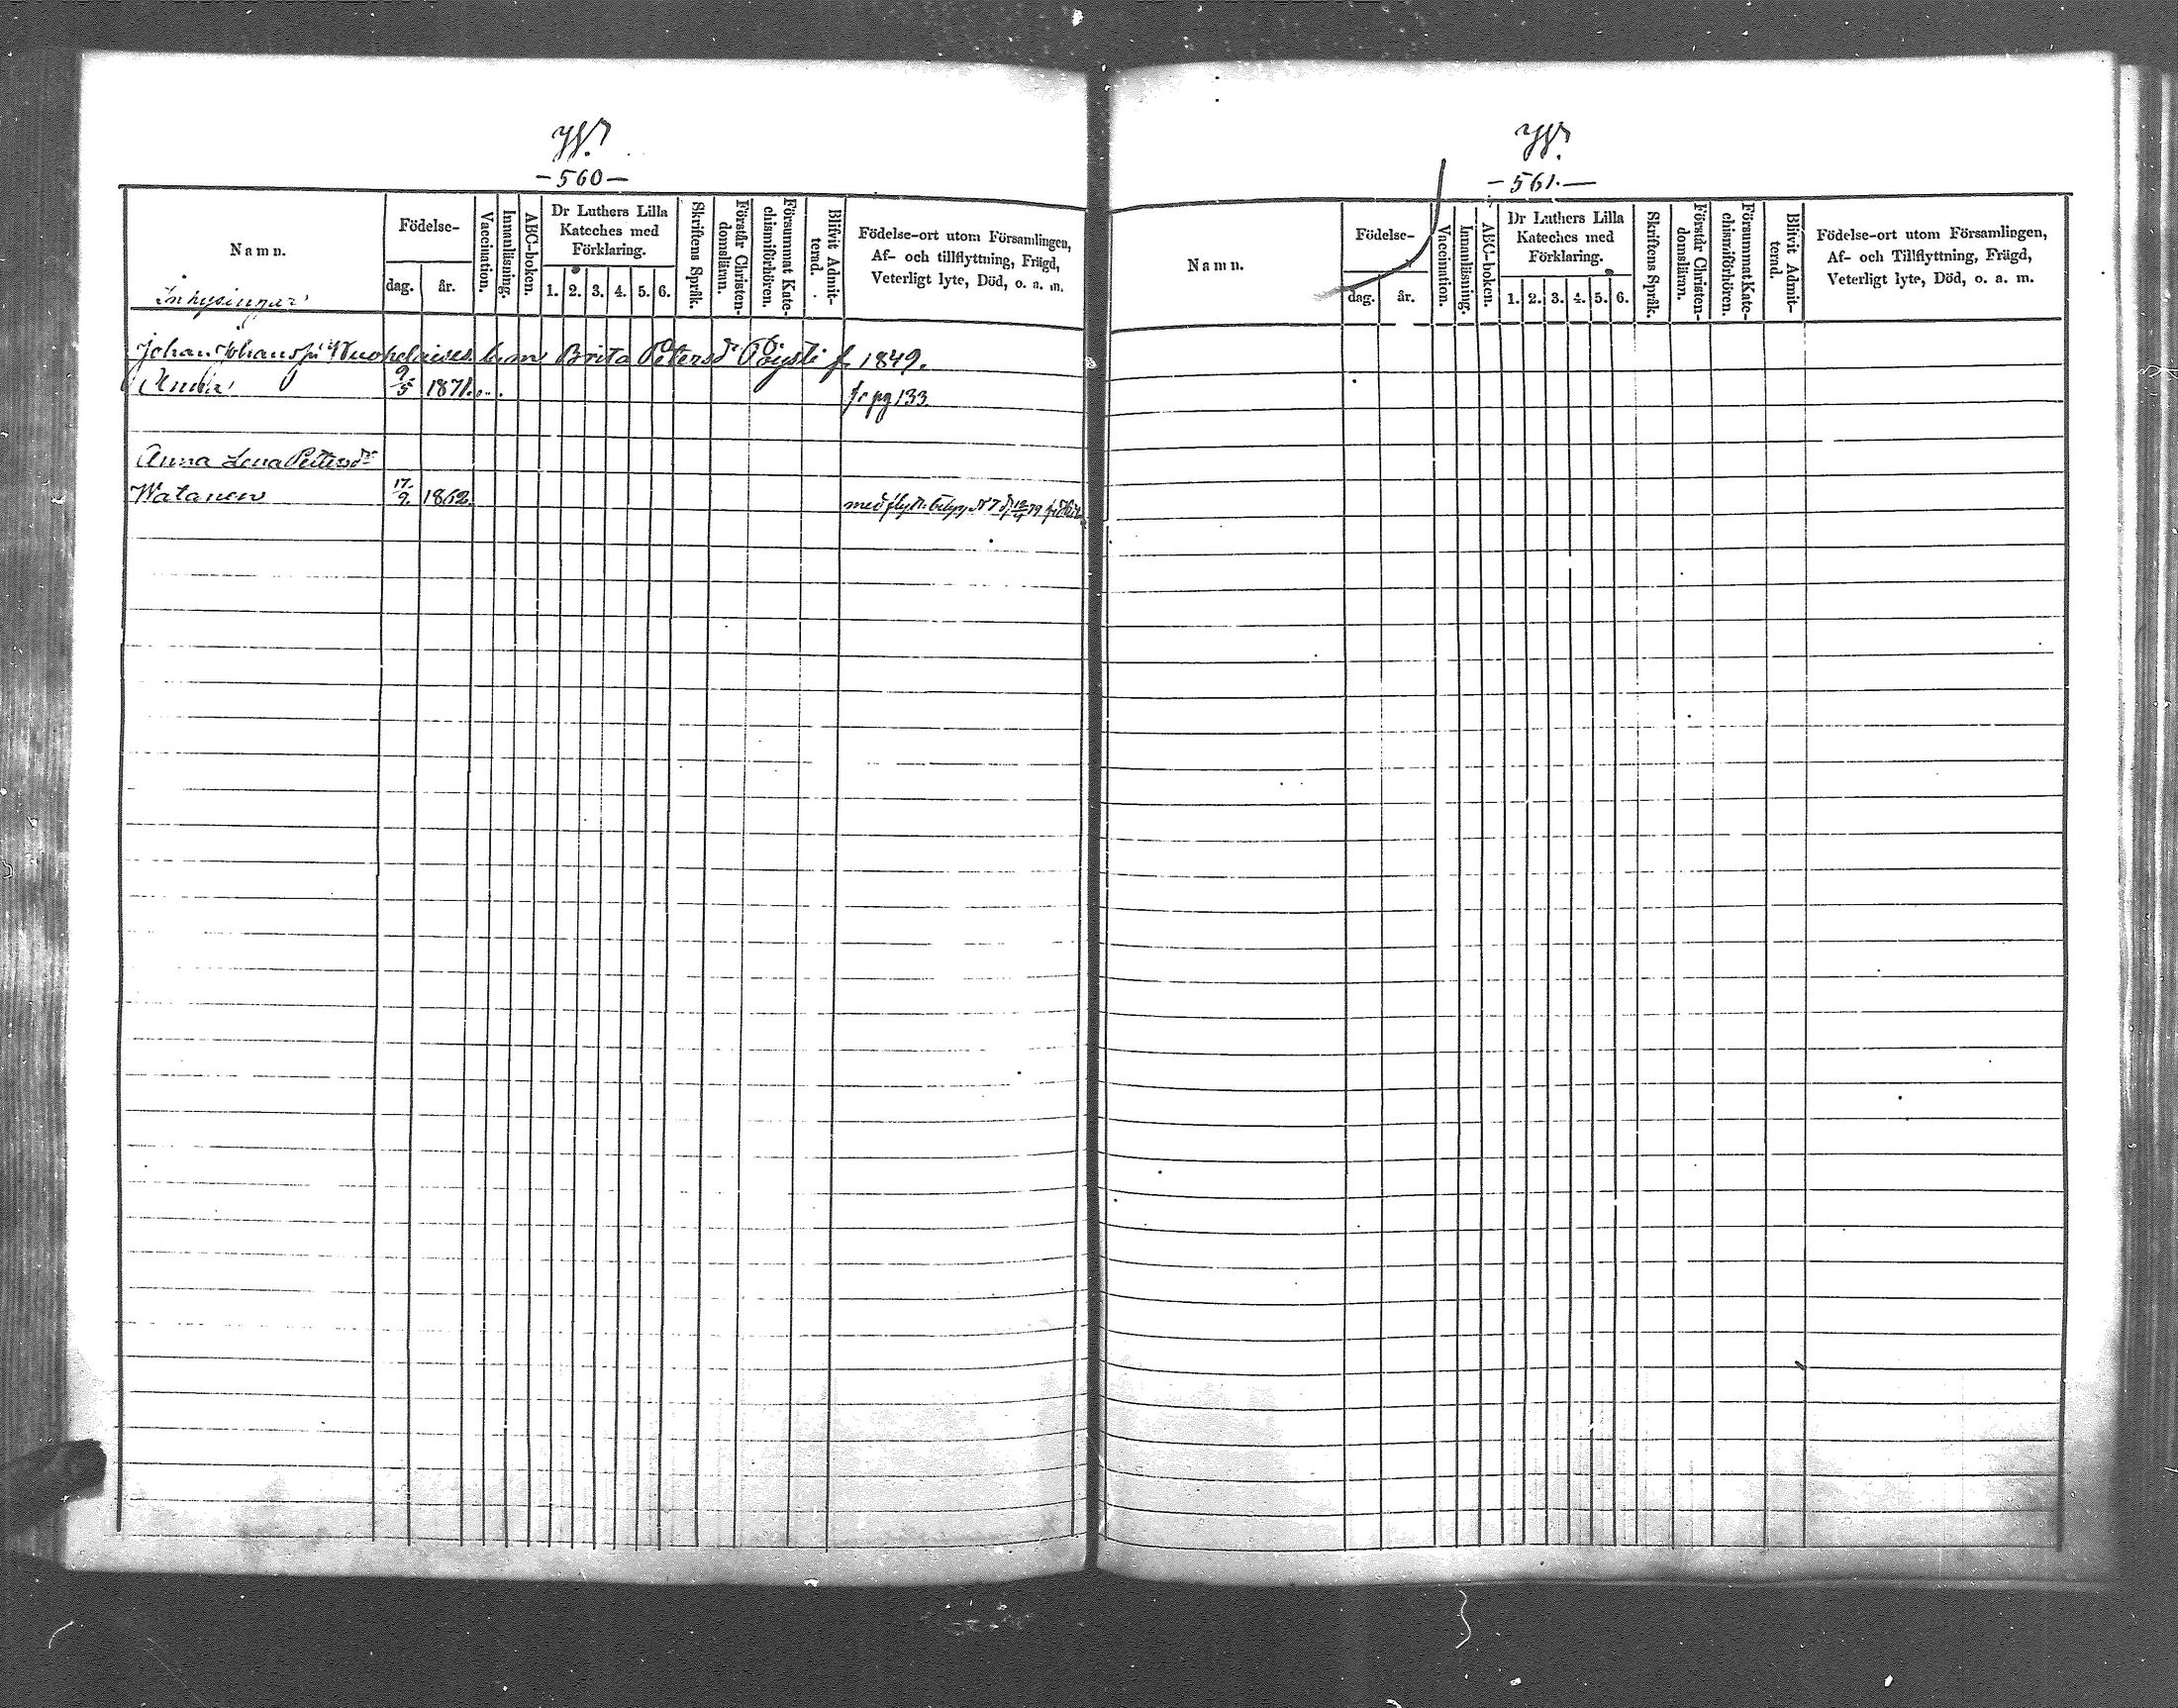 -560-
Namn.
Födelse-
dag.
år.
Vaccination.
Innanläsning.
ABC-boken.
Dr Luthers Lilla
Kateches med
Förklaring.
1. 2. 3. 4. 5. 6.
Skriftens Språk.
Förstår Christen-
domsläran.
Försummat Kate-
chismiförhören.
Blifvit Admit-
terad.
Födelse-ort utom Församlingen,
Af- och tillflyttning, Frägd,
Veterligt lyte, Död, o. a. m.
Inhysingar
Johan Brita Petersdr Pöysti f. 1849.
Anna 9/5 1871. fr pg 133
Anna Lena Petersdr
Watanen 17/9. 1862.
-561.-
Namn.
Födelse-
dag.
år.
Vaccination.
Innanläsning.
ABC-boken.
Dr Luthers Lilla
Kateches med
Förklaring.
1. 2. 3. 4. 5. 6.
Skriftens Språk.
Förstår Christen-
domsläran.
Försummat Kate-
chismiförhören.
Blifvit Admit-
terad.
Födelse-ort utom Församlingen,
Af- och Tillflyttning, Frägd,
Veterligt lyte, Död, o. a. m.